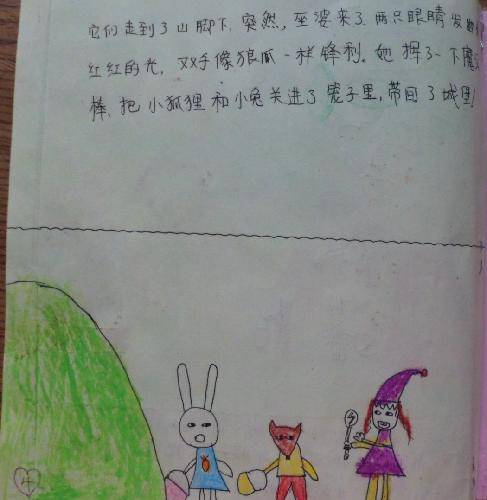 它们走到了山脚下,突然,巫婆来了,两只眼睛发出
红红的光,双手像狼爪一样锋利。她挥了一下魔
棒,把小狐狸和小兔关进了笼子里,带回了城里!